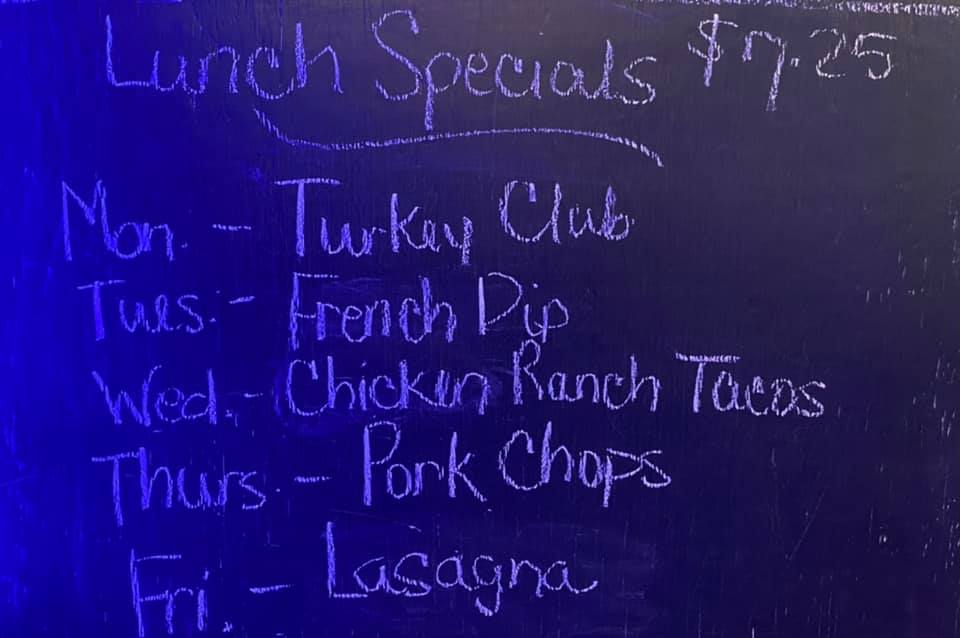 Lunch Specials $7.25
Mon. - Turkey Club
Tues. - French Dip
Wed. - Chicken Ranch Tacos
Thurs. - Pork Chops
Fri. - Lasagna